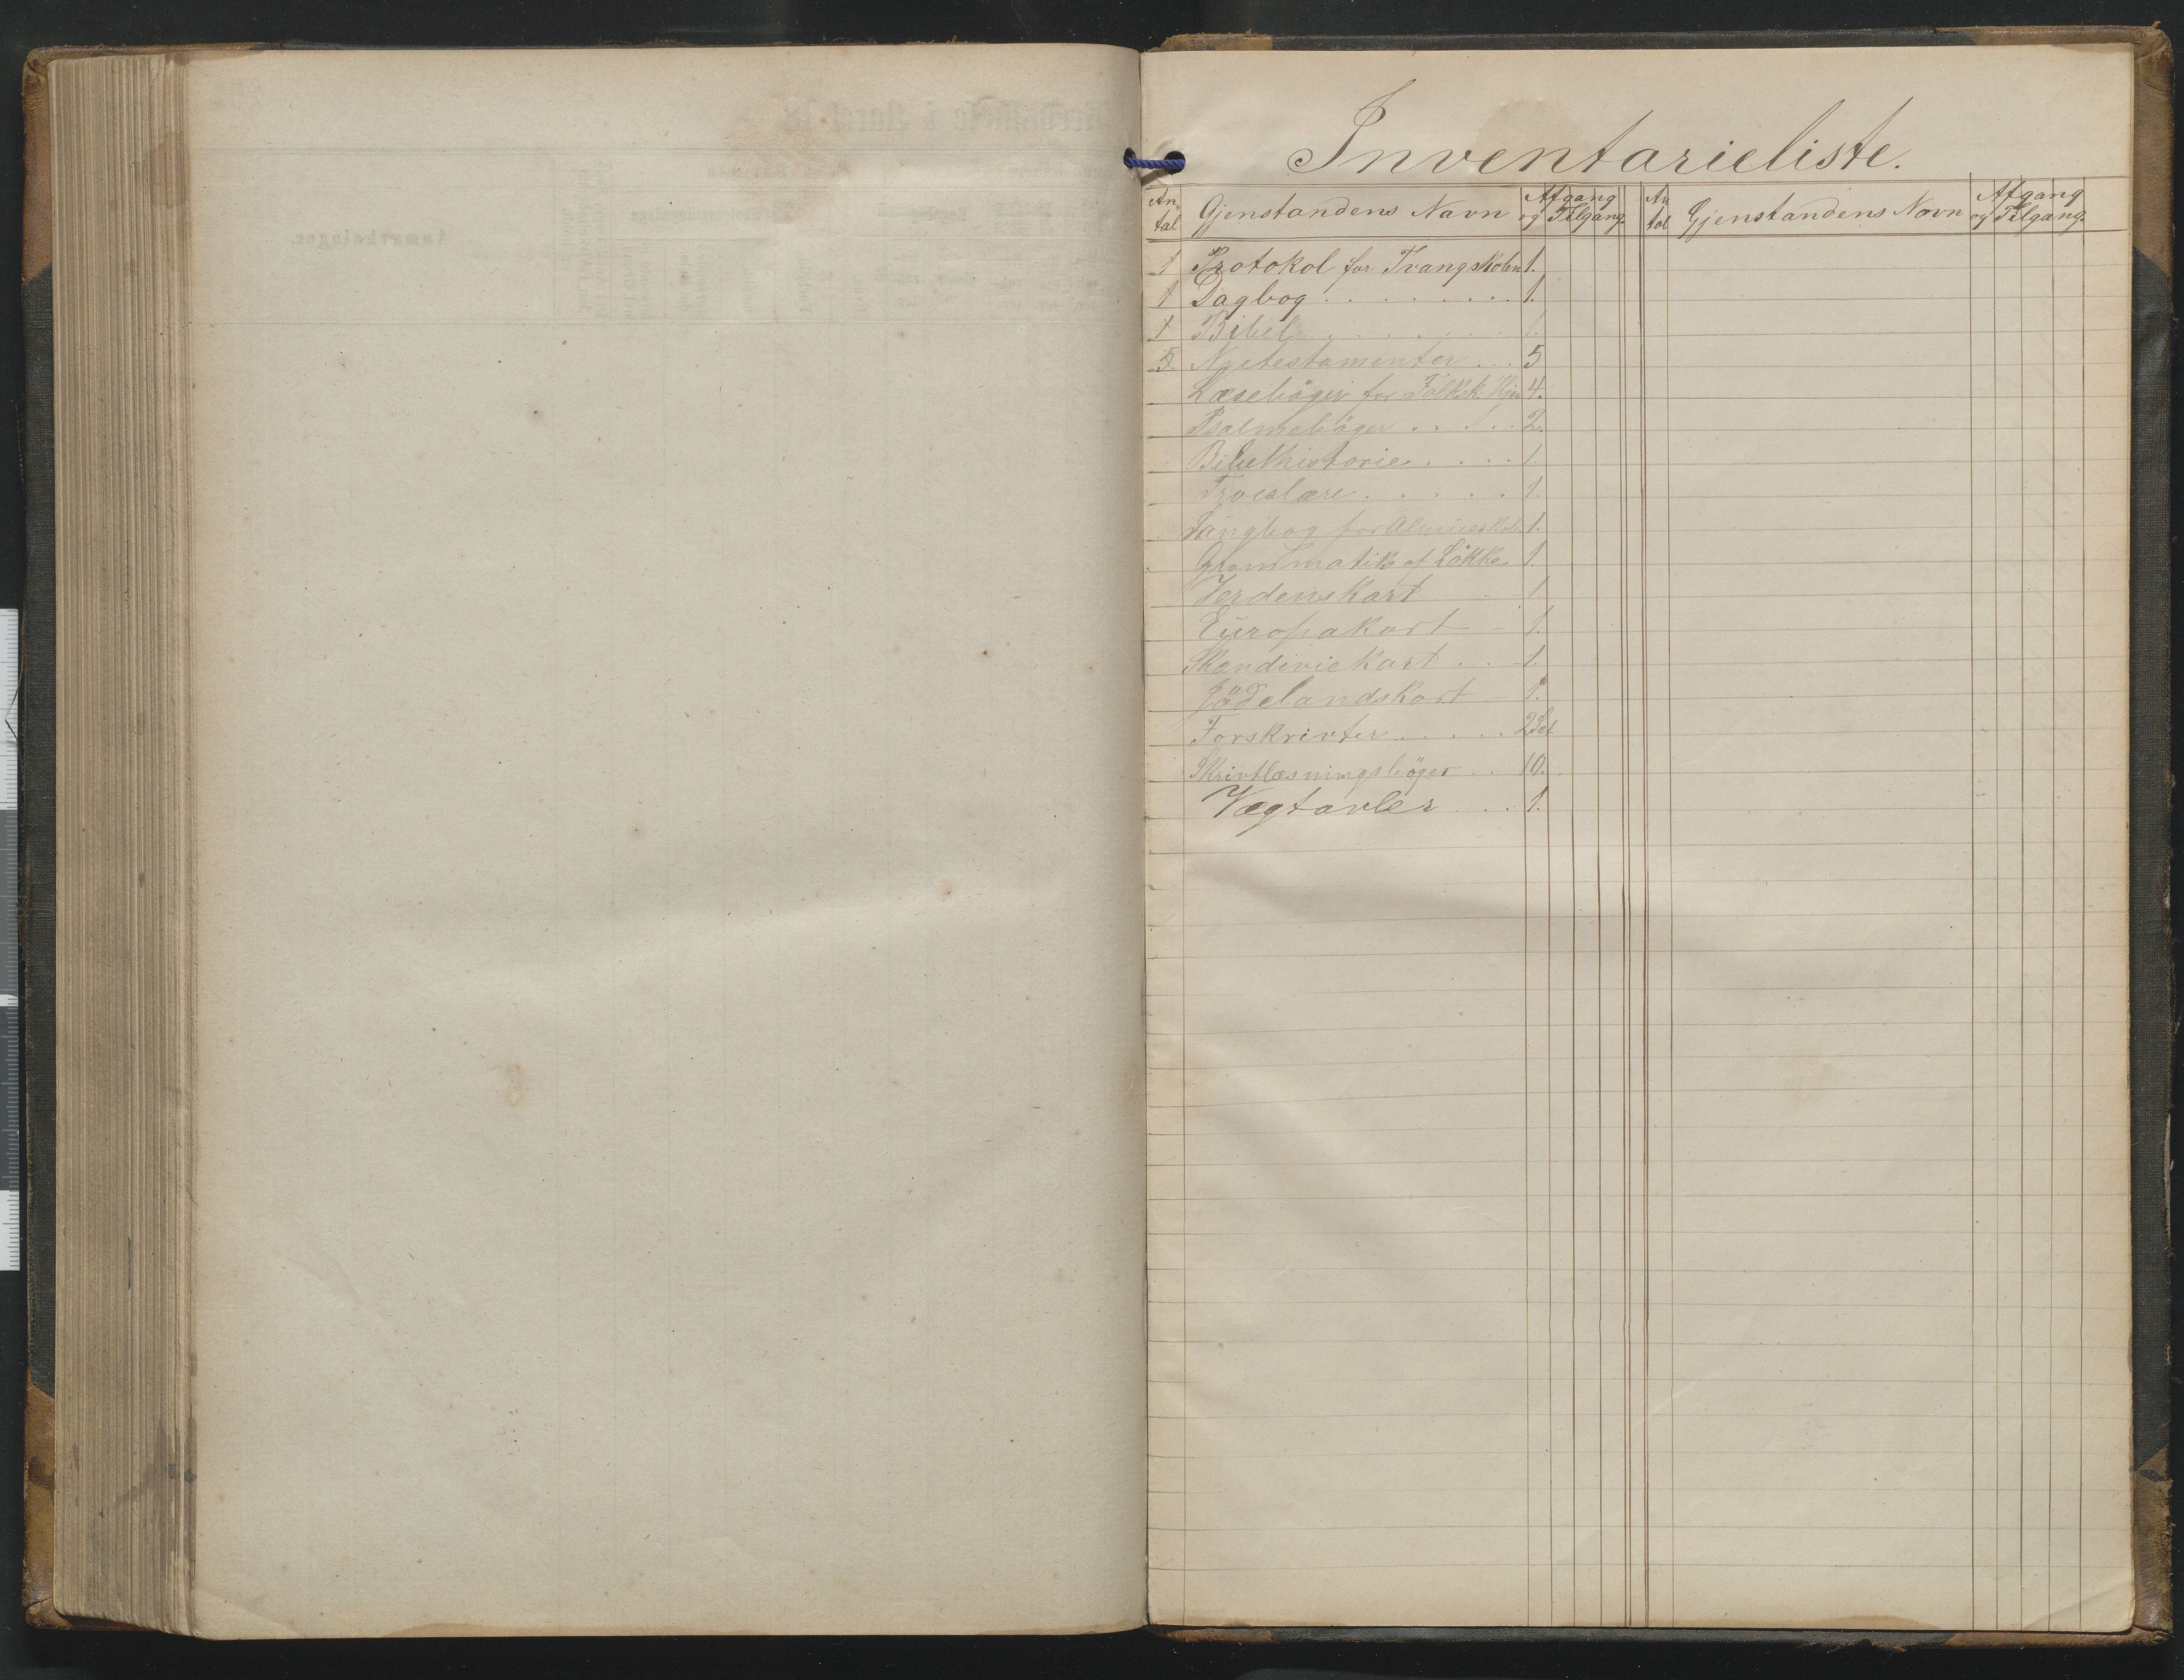 Inventarieliste.
An- tal Gjenstandens Navn Afgang og Tilgang. An tal Gjenstandens Navn Afgang og Tilgang.
1 Protokol for Tvangskolen 1.
1 Dagbog . . . . . . . . . 1.
1 Bibel . . . . . . . 1.
5. Nyetestamenter . . . 5
Læsebøger for Folksk. Hjem 4.
Psalmebøger . . . . . 2.
Bibelhistorie . . . . 1.
Troeslære . . . . . 1.
Sangbog for 1.
Grammatik af Løkke 1.
Verdenskart 1.
Europakart 1.
Skandiviekart . . 1.
Jødelandskart 1.
Forskrivter . . . . . 2 Sæt
Skrivtlæsningsbøger . . 10.
Vægtavler . . . 1.